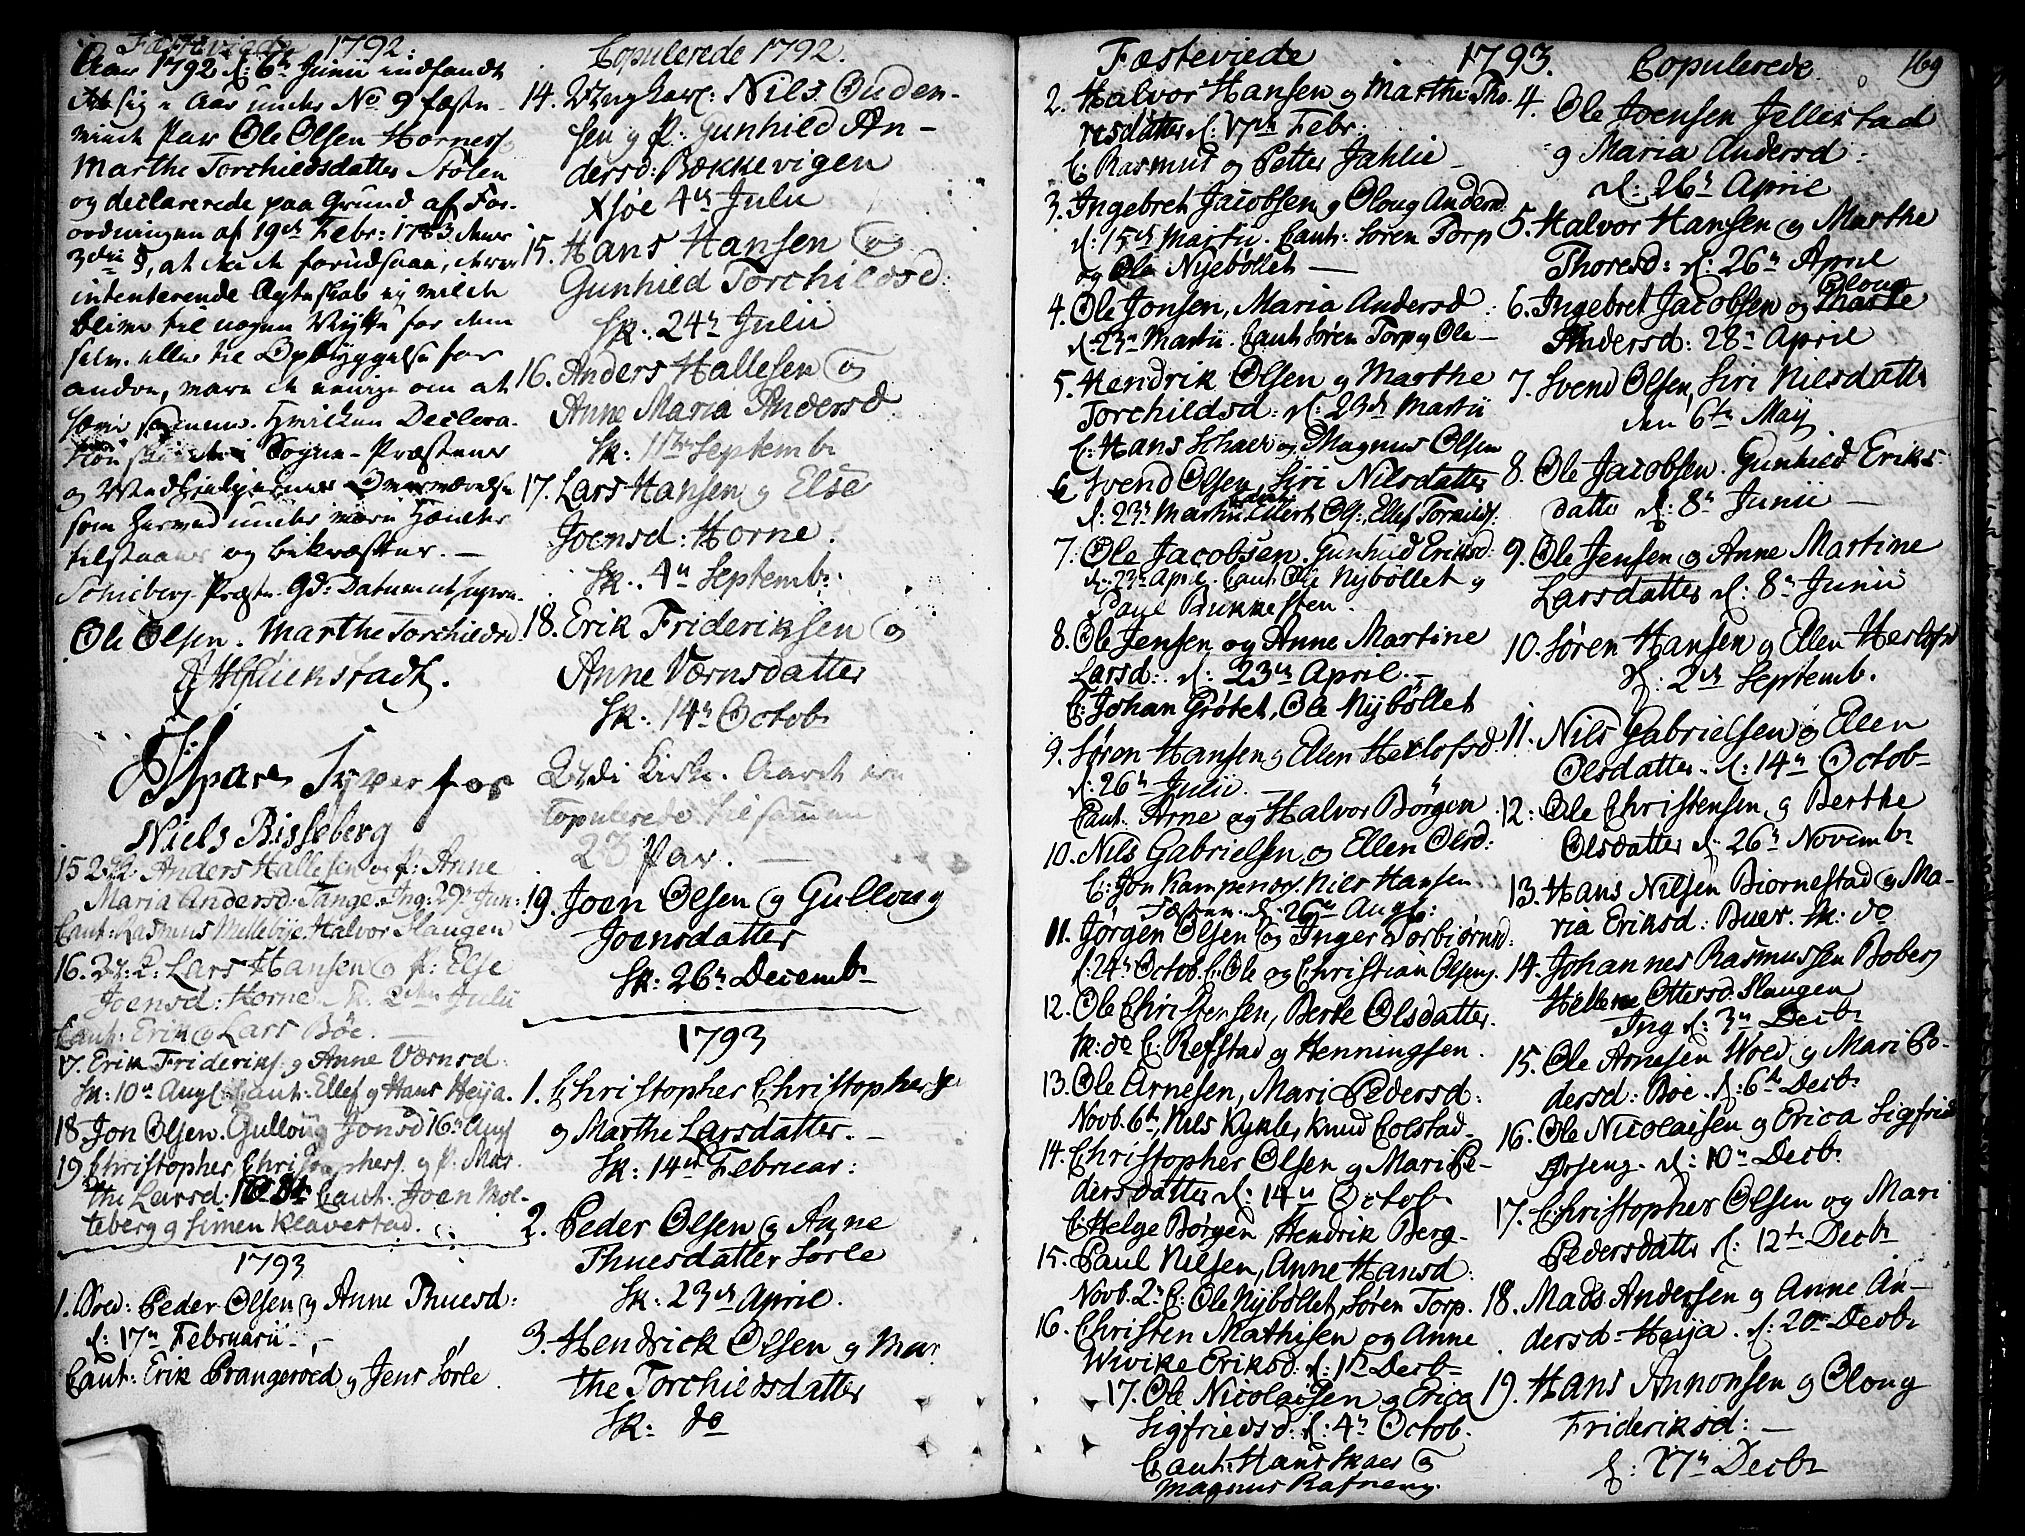 Fæsteviede 1792.
Aar 1792 d: 6te Junii indfandt
sig i Aar under No 9 fæste-
Par Ole Olsen Hornes
Marthe Torchildsdatter Stølen
og declarerede paa Grund af For-
ordningen af 19de Febr: 1783 deres
3die §, at de forudsaae, deres
intenterende Ægteskab ej
blive til nogen Nytte for dem
selv eller til Opbyggelse for
andre, vare de eenige om at
hæve samme. Hvilken Declara-
tion skeede i Sogne-Præstens
og Medhielpernes Overværelse
som hermed under vore Hænder
tilstaaes og bekræftes. —
Schieberg Præste-Gd: Datum ut supra.
Ole Olsen. Marthe Torchildsd
Niels Bisseberg
15. Anders Hallesen og P: Anne
Maria Andersd: Tange. Ing: 29de Jun:
Caut: Rasmus Mellebye Halvor Haugen
16. Lars Hansen og P: Else
Joensd: Horne Sk. Julii
Caut: Erik og Lars Bøe. —
17. Erik Frideriks. og Anne Værnsd:
Sk: 10de Augs Caut: Ellef og Hans Heija.
18. Jon Olsen. Gulloug Jonsd 16de Augs
19. Christopher Christophers. og P. Mar-
the Larsd: Caut. Joen Mol-
teberg og Simen Klavestad.
1793
1. Peder Olsen og Anne Thuesd:
d: 17de Februarii —
Caut: Erik Prangerøed og Jens Sørle.
Copulerede 1792.
14. Ungkarl: Nils Ouden-
sen og P. Gunhild An-
dersd: Bækkevigen
Xsøe 4de Julii
15. Hans Hansen og
Gunhild Torchildsd:
Sk: 24de Julii
16. Anders Hallesen og
Anne Maria Andersd.
Sk: 11te Septemb.
17. Lars Hansen og Else
Joensd: Horne.
Sk. 4de Septemb:
18. Erik Fridericksen og
Anne Værnsdatter
Sk: 14de Octob.
Kirke. Aaret
Copulerede tilsamen
23 Par. —
19. Joen Olsen og Gulloug
Joensdatter
Sk: 26de Decemb.
1793
1. Christopher Christophers.
og Marthe Larsdatter. —
Sk: 14de Februar:
2. Peder Olsen og Anne
Thuesdatter Sørle
Sk: 23de April.
3. Hendrick Olsen og Mar-
the Torchildsdatter
Sk: do
Fæsteviede 1793.
2. Halvor Hansen og Marthe Tho-
resdatter d: 17de Febr:
C: Rasmus og Petter Jahlie —
3. Ingebret Jacobsen og Oloug Andersd:
d: 15de Martii. Caut: Søren Torp
og Ole Nyebøllet —
4. Ole Jonsen, Maria Andersd
d. 23de Martii. Caut Søren Torp og Ole —
5. Hendrik Olsen og Marthe
Torchildsd: d: 23de Martii
C: Hans Schaer og Magnus Olsen
6 Svend Olsen, Siri Nilsdatter
d: 23de Martii Ellert Ols:, Ellef
7. Ole Jacobsen. Gunhild Eriksd:
d: 23de April. Caut. Ole Nybøllet og
Paul Bukkesten.
8. Ole Jensen og Anne Martine
Larsd: d: 23de April. —
C: Johan Grøtet, Ole Nybøllet
9. Søren Hansen og Ellen Herlofsd.
d: 26de Julii. —
Caut. Arne og Halvor Børgen
10. Nils Gabrielsen og Ellen Olsd:
C: Jon Kampenes. Nils Hansen
d. 26de Augs:
11. Jørgen Olsen og Inger Torbiørnsd:
d: 24de Octob. C: Ole og Christian Olseng.
12. Ole Christensen, Berte Olsdatter.
Sk: do C: Refstad og Henningsen.
13. Ole Arnesen, Mari Pedersd:
Novb. 6te, Nils Kykle, Knud Colstad.
14. Christopher Olsen og Mari Pe-
dersdatter d: 14de Octob.
C: Helge Børgen, Hendrik Berg.
15. Paul Nilsen, Anne Hansd:
Novb. 2de C: Ole Nybøllet, Søren Torp.
16. Christen Mathisen og Anne
Wivike Eriksd: d: 1te Decb.
17. Ole Nicolaisen og Erica
Sigfriedsd: d: 4de Octob.
Caut: Hans Skaer og
Magnus Rafneng.
Copulerede 169
4. Ole Joensen Jellestad
og Maria Andersd:
d: 26de April
5. Halvor Hansen og Marthe
Thoresd: d: 26de April
6. Ingebret Jacobsen og Oloug
Andersd: 28de April
7. Svend Olsen, Siri Nilsdatter
den 6te Maij
8. Ole Jacobsen. Gunhild Eriks-
datter d: 8de Junii —
9. Ole Jensen og Anne Martine
Larsdatter d: 8de Junii
10. Søren Hansen og Ellen Herlofsd
d: 2den Septemb.
11. Nils Gabrielsen og Ellen
Olsdatter. d: 14de Octob.
12. Ole Christensen og Berthe
Olsdatter d. 26de Novemb.
13. Hans Nilsen Biørnestad og Ma-
ria Eriksd: Buer. Sk: do
14. Johannes Rasmussen Boberg
Hellene Ottersd. Slaugen
Ing d: 3de Decb.
15. Ole Arnesen Woed og Mari Pe-
dersd: Boe. d: 6te Decb.
16. Ole Nicolaisen og Erica Sigfried
Ørseng. d: 10de Decb.
17. Christopher Olsen og Mari
Pedersdatter d: 12te Decb.
18. Mads Andersen og Anne An-
dersd: Heija. d: 20de Decb.
19. Hans Annonsen og Oloug
Frideriksd: —
d: 27de Decb.